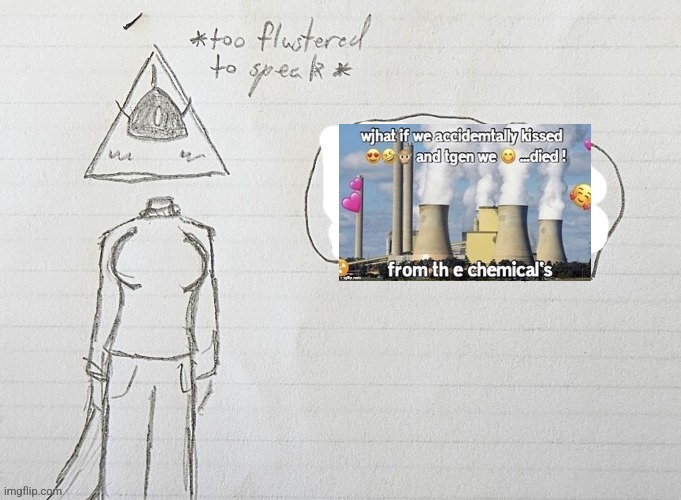 *too flustered
to speak*
wjhat if we accidemtally kissed
😍🤣🐵 and tgen we 😋 ...died !
from th e chemical's
imgflip.com